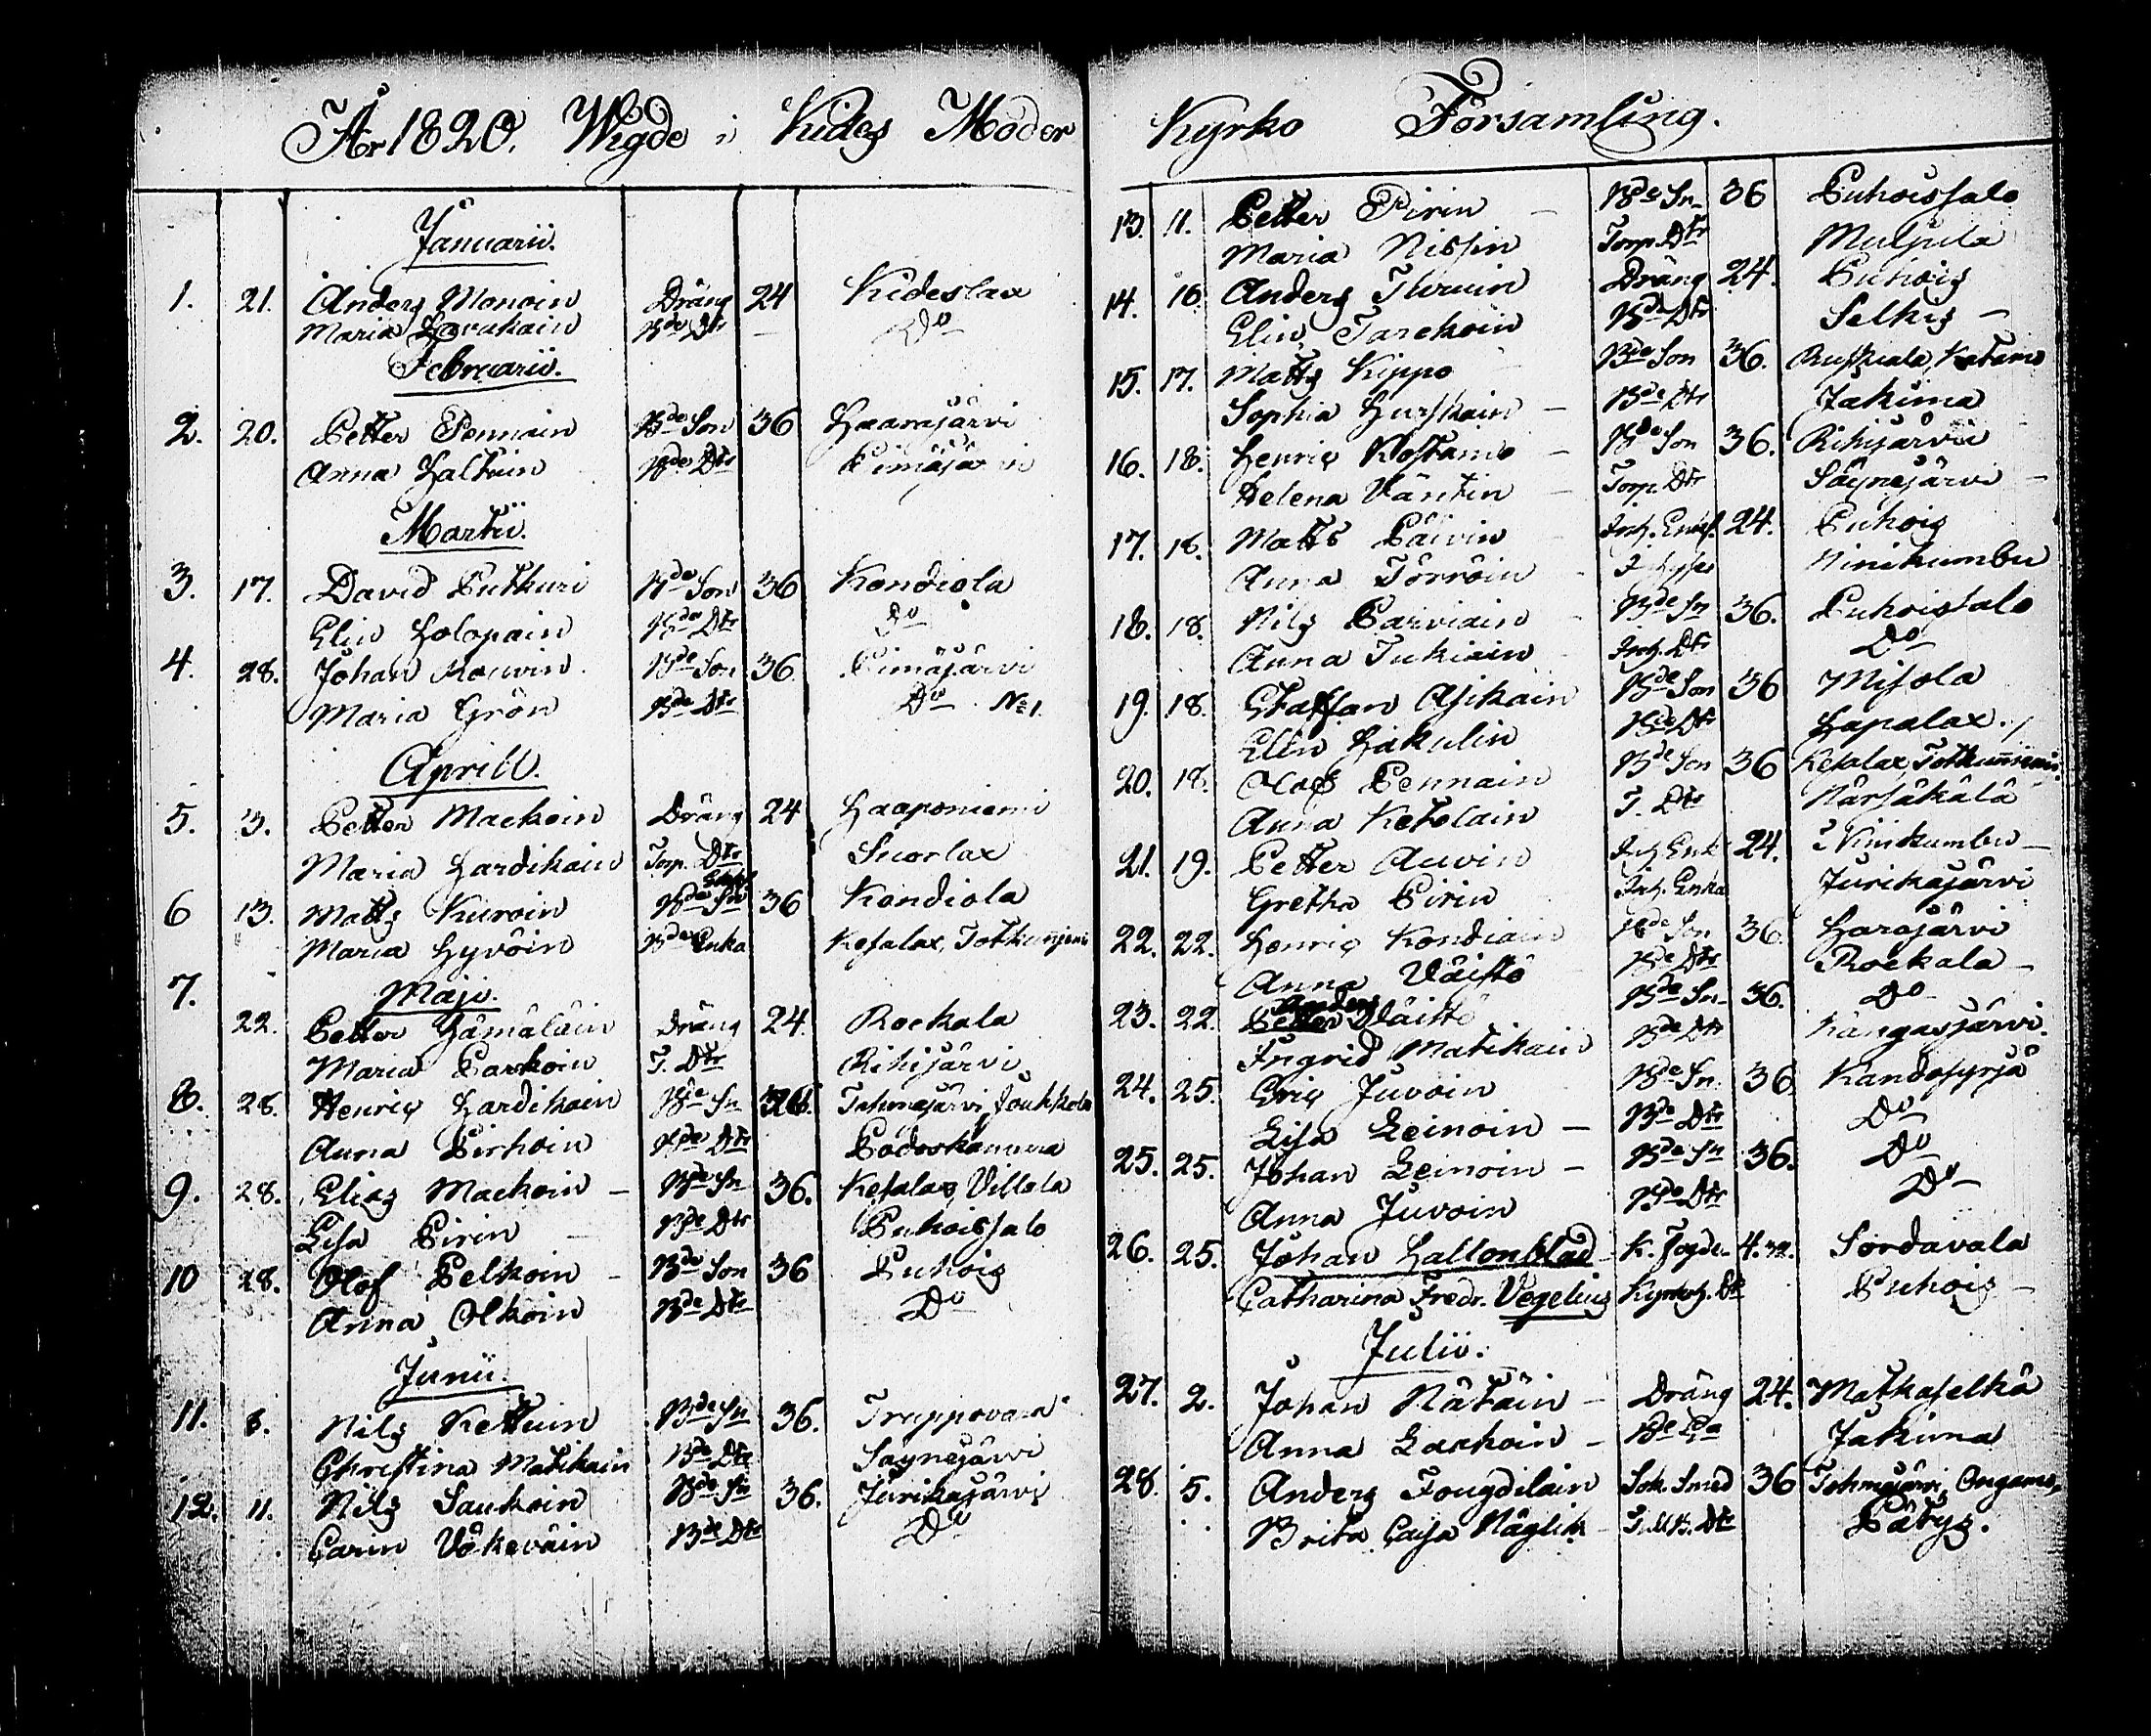 År 1820. Wigde i Kides Moder Kyrko Församling.
Januarii.
1. 21. Anders Monoin Dräng 24 Kideslax
Maria Bde Dtr Do
Februarii.
2. 20. Petter Pennain Bde Son 36 Haarajärvi
Anna Haltuin Bde Dtr Pimäjärvi
Martii.
3. 17. David Puthuri Bde Son 36 Kondiola
Elin Holopain Bde Dtr Do
4. 28. Johan Rouvin Bde Son 36 Pimäjärvi
Maria Grön Bde Dtr Do No 1.
Aprill.
5. 3. Petter Mackoin Dräng 24 Haaponiemi
Maria Hardikain Torp. Dtr Suorlax
6 13. Matts Kuroin Bde Sn 36 Kondiola
Maria Hyvöin Bde Enka Kesalax, Totkunniemi
7. Maji.
22. Petter Hämäläin Dräng 24. Rockala
Maria Parkoin T. Dtr Rihijärvi
8. 28. Henric Hardikain Bde Sn 36. Tohmajärvi, Joukkola
Anna Pirhoin Bde Dtr
9. 28. Elias Mackoin – Bde Sn 36. Kesalax, Villala
Lisa Pirin – Bde Dtr Puhoissalo
10 28. Olof Pelkoin – Bde Son 36 Puhois
Anna Olkoin Bde Dtr Do
Junii.
11. 8. Nils Kettuin Bde Sn 36. Truppovara
Christina Matikain Bde Dtr Säynejärvi
12. 11. Nils Saukoin Bde Sn 36. Jurikajärvi
Carin Väkeväin Bde Dtr Do
13. 11. Petter Pirin – Bde Sn 36 Puhoissalo
Maria Nissin Torp. Dtr Muljula
14. 16. Anders Dräng 24. Puhois
Elin Tarckoin Bde Dtr Selkis –
15. 17. Matts Kippo Bde Son 36. Ruskiala, Katamo
Sophia Hurskain – Bde Dtr Jakima
16. 18. Henric Kostamo – Bde Son 36. Rihijärvi
Helena Väntin – Torp. Dtr Säynejärvi –
17. 18. Matts Päivin – Inh. Enkl. 24. Puhois
Anna Törröin Ninikumbu
18. 18. Nils Parviain Bde Sn 36. Puhoissalo
Anna Tukiain Inh. Dtr Do
19. 18. Staffan Asikain Bde Son 36 Misola
Elin Hakulin Bde Dtr Hapalax.
20. 18. Olof Pennain Bde Son 36 Kesalax, Totkunniemi
Anna Ketolain T. Dtr Närsäkälä
21. 19. Petter Auvin Inh. Enk. 24. Ninikumbu –
Gretha Pirin Inh. Enka Jurikajärvi
22. 22. Henric Kondiain Bde Son 36. Harajärvi
Anna Väistö Bde Dtr Rockala –
23. 22. Anders Väistö Bde Sn 36. Do
Ingrid Matikain Bde Dtr Kangasjärvi.
24. 25. Eric Juvoin Bde Sn. 36. Kandosyrjä
Lisa Leinoin – Bde Dtr Do
25. 25. Johan Leinoin – Bde Sn 36. Do
Anna Juvoin Bde Dtr Do –
26. 25. Johan Hallonblad K. Fogde 4. 32. Sordavala
Catharina Fredr. Vegelius Kyrkoh. Dtr Puhois –
Julii.
27. 2. Johan Nätäin – Dräng 24. Matkaselkä
Anna Larhoin – Bde Pa Jakima
28. 5. Anders Fougdilain Sok. Smed 36 Tohmajärvi, Ongamo,
Brita Caisa Näglik Tullk. Dtr Pätys.